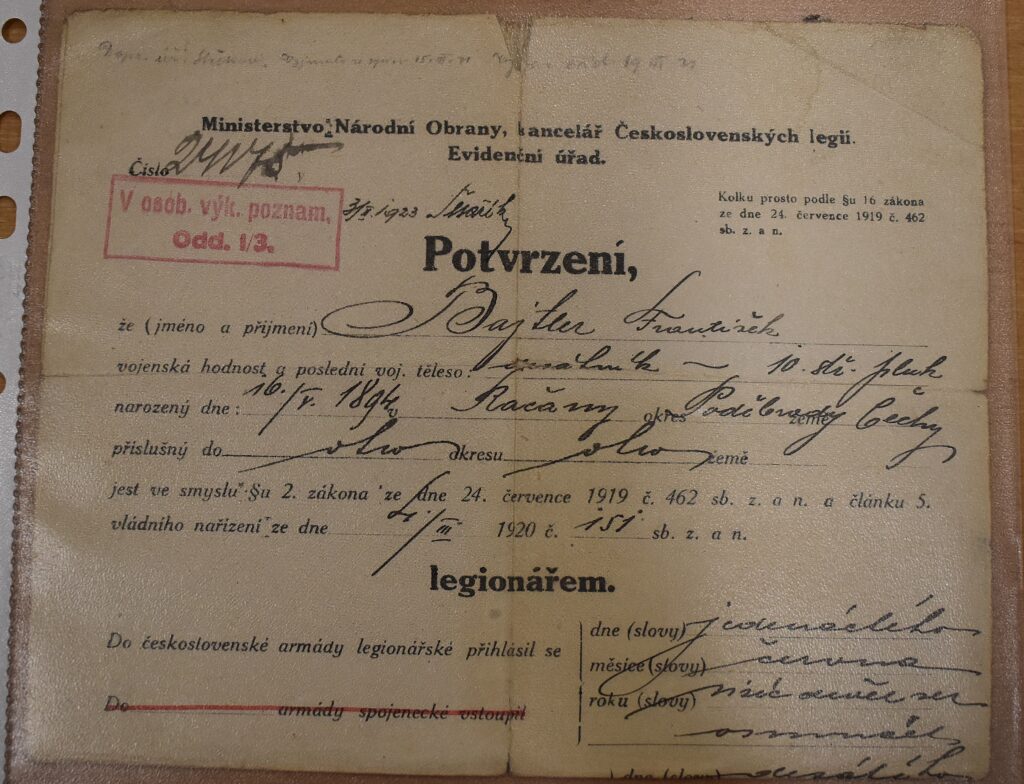 Ministerstvo Národní Obrany, kancelář Československých legií.
Evidenční úřad.
Číslo
V osob. výk. poznam,
Odd. 1/3.
3/V. 1923
Kolku prosto podle §u 16 zákona
ze dne 24. července 1919 č. 462
sb. z. a n.
Potvrzení,
že (jméno a příjmení) Bajtler František
vojenská hodnost a poslední voj. těleso: 10. stř. pluk
narozený dne: 16./V. 1894 v Račany okres Poděbrady země Čechy
příslušný do okresu země
jest ve smyslu §u 2. zákona ze dne 24. července 1919 č. 462 sb. z. a n. a článku 5.
vládního nařízení ze dne 4./III 1920 č. 151 sb. z. a n.
legionářem.
Do československé armády legionářské přihlásil se
dne (slovy) jedenáctého
měsíce (slovy) června
roku (slovy) tisíc devět set
osmnáct
Do armády spojenecké vstoupil
dne (slovy)